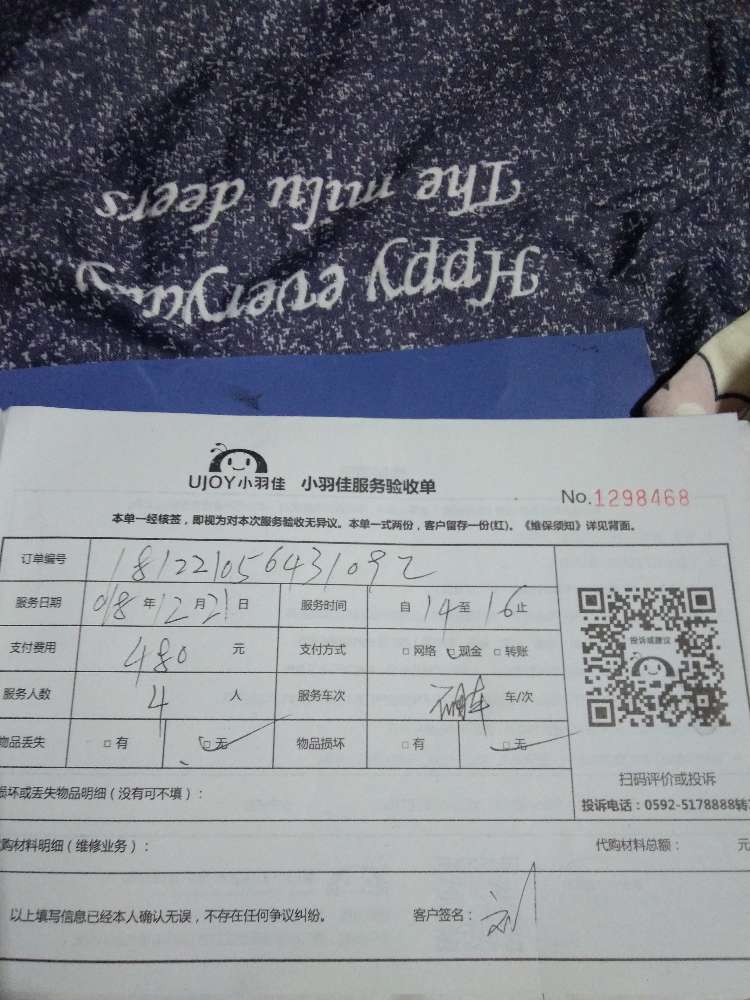 The milu deers
Hppy everyday
UJOY小羽佳 小羽佳服务验收单
No.1298468
本单一经核签，即视为对本次服务验收无异议。本单一式两份，客户留存一份(红)。《维保须知》详见背面。
订单编号 181221056431092
服务日期 018年12月21日 服务时间 自14至16止
支付费用 480 元 支付方式 □网络 ☑现金 □转账
服务人数 4 人 服务车次 车/次
物品丢失 □有 ☑无 物品损坏 □有 ☑无
投诉或建议
扫码评价或投诉
投诉电话：0592-5178888转
损坏或丢失物品明细（没有可不填）：
代购材料明细（维修业务）： 代购材料总额： 元
以上填写信息已经本人确认无误，不存在任何争议纠纷。 客户签名：刘